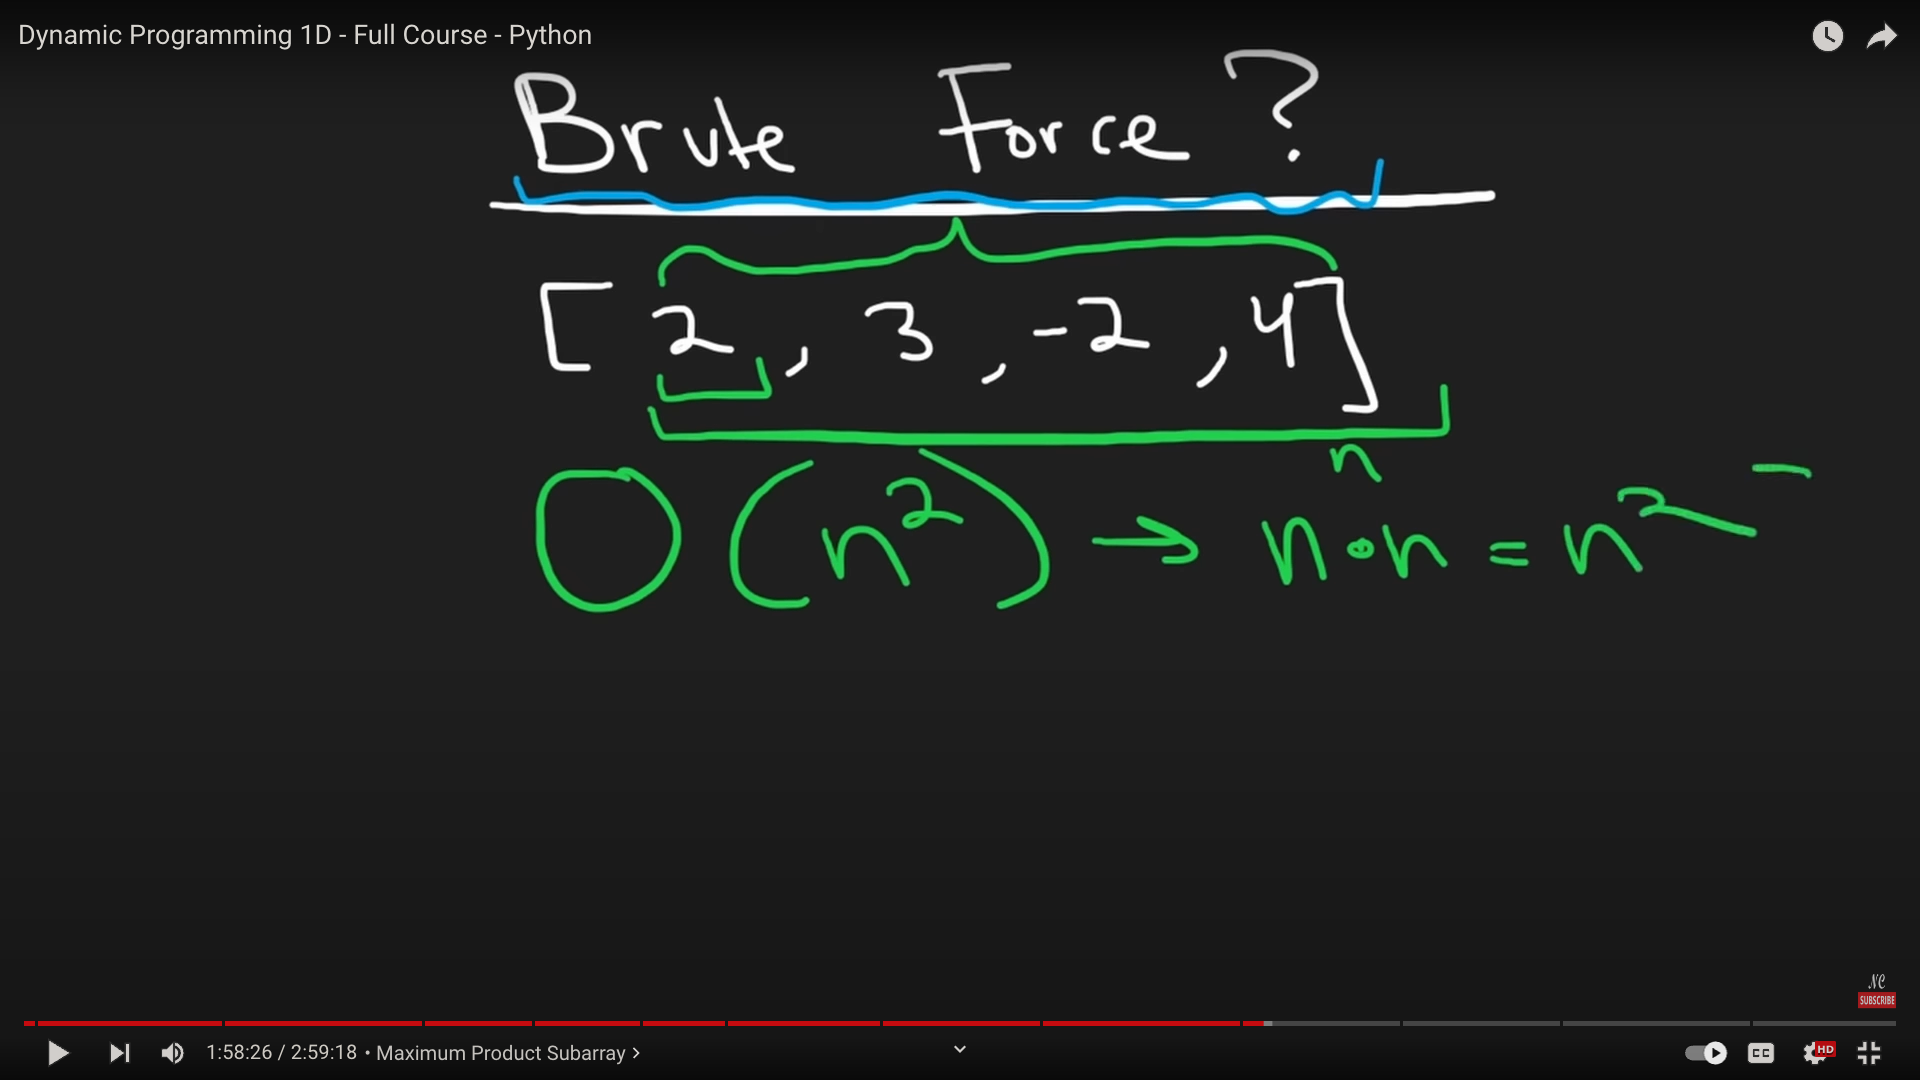 Dynamic Programming 1D - Full Course - Python
Brute Force?
[2, 3, -2, 4]
n
O(n²) → n·n = n²
NC
SUBSCRIBE
1:58:26 / 2:59:18 • Maximum Product Subarray >
CC
HD